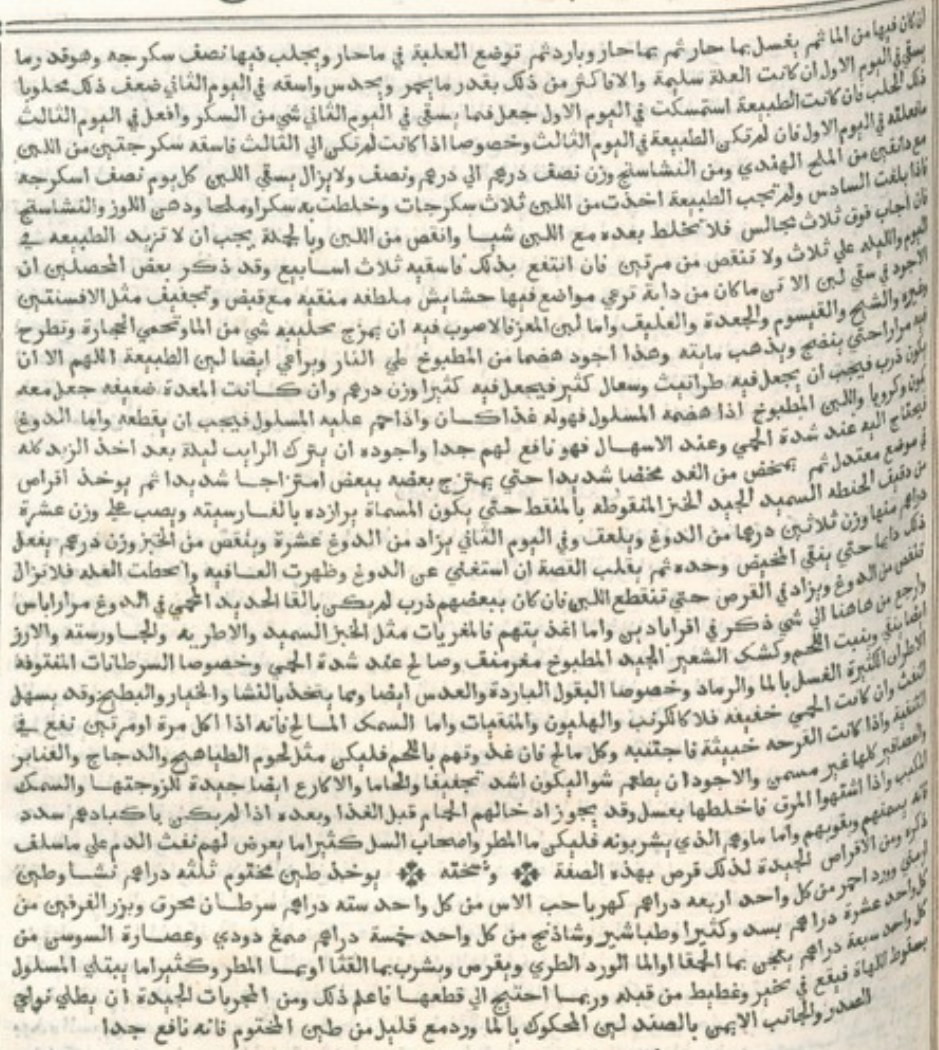 ان كان فيها من الما ثم يغسل بما حار ثم بما حار وبارد ثم توضع العلبة في ما حار ويجلب فيها نصف سكرجه وهو قدر ما
يسقي في اليوم الاول ان كانت العلة سليمة والا فاكثر من ذلك بقدر ما يحمر ويحدس واسقه في اليوم الثاني ضعف ذلك محلوبا
ذلك الحلب فان كانت الطبيعة استمسكت في اليوم الاول جعل فيما يسقي في اليوم الثاني شي من السكر وافعل في اليوم الثالث
ما فعلته في اليوم الاول فان لم تكن الطبيعة في اليوم الثالث وخصوصا اذا كانت لم تكن الي الثالث فاسقه سكرجتين من اللبن
مع دانقين من الملح الهندي ومن النشاستج وزن نصف درهم الي درهم ونصف ولا يزال يسقي اللبن كل يوم نصف اسكرجه
فاذا بلغت السادس ولم تجب الطبيعة اخذت من اللبن ثلاث سكرجات وخلطت به سكرا وملحا ودهن اللوز والنشاستج
فان اجاب فوق ثلاث مجالس فلا تخلط بعده مع اللبن شيا وانقص من اللبن وبالجملة يجب ان لا تزيد الطبيعه في
اليوم والليله علي ثلاث ولا تنقص من مرتين فان انتفع بذلك فاسقيه ثلاث اسابيع وقد ذكر بعض المحصلين ان
الاجود في سقي لبن الاتن ما كان من دابة ترعي مواضع فيها حشايش ملطفه منقيه مع قبض وتجفيف مثل الافسنتين
وغيره والشيح والقيسوم والجعدة والعليق واما لبن المعز فالاصوب فيه ان يمزج بحليبه شي من الما وتحمي الحجارة وتطرح
فيه مرارا حتي ينضج ويذهب مايته وهذا اجود هضما من المطبوخ علي النار ويراعي ايضا لين الطبيعة اللهم الا ان
يكون ذرب فيجب ان يجعل فيه طراثيث وسعال كثير فيجعل فيه كثيرا وزن درهم وان كانت المعدة ضعيفه جعل معه
كمون وكرويا واللبن المطبوخ اذا هضمه المسلول فهو له غذا كان واذا حم عليه المسلول فيجب ان يقطعه واما الدوغ
فيحتاج اليه عند شدة الحمي وعند الاسهال فهو نافع لهم جدا واجوده ان يترك الرايب ليلة بعد اخذ الزبد كله
في موضع معتدل ثم يمخض من الغد مخضا شديدا حتي يمتزج بعضه ببعض امتزاجا شديدا ثم يوخذ اقراص
من دقيق الحنطه السميد الجيد الخبز المنقوطه بالمنقط حتي يكون المسماة برازده بالفارسيته ويصب علي وزن عشرة
دراهم منها وزن ثلاثين درهما من الدوغ ويلعق وفي اليوم الثاني يزاد من الدوغ عشرة وينقص من الخبز وزن درهم يفعل
ذلك دايما حتي يبقي المخيض وحده ثم يقلب القصة ان استغني عن الدوغ وظهرت العافيه وانحطت العله فلا تزال
تنقص من الدوغ ويزاد في القرص حتي تنقطع اللبن فان كان ببعضهم ذرب لم يكن بالقا الحديد المحمي في الدوغ مرارا باس
وارجع من هاهنا الي شي ذكر في اقراباذين واما اغذيتهم فالمغريات مثل الخبز السميد والاطريه والجاورسته والارز
ايضا ينقي وينبت اللحم وكشك الشعير الجيد المطبوخ مغر منق وصالح عند شدة الحمي وخصوصا السرطانات المنتوفة
الاطراف الكثيرة الغسل بالما والرماد وخصوصا البقول الباردة والعدس ايضا وما يتخذ بالنشا والخيار والبطيخ وقد يسهل
النفث وان كانت الحمي خفيفه فلا كالكرنب والهليون والمنقيات واما السمك المالح فانه اذا اكل مرة او مرتين نفع في
التنقية واذا كانت القرحه خبيثة فاجتنبه وكل مالح فان غذوتهم باللحم فليكن مثل لحوم الطياهيج والدجاج والقنابر
والعصافير كلها غير مسمن والاجود ان يطعم شوا ليكون اشد تجفيفا والحاما والاكارع ايضا جيدة للزوجتها والسمك
المكبب واذا اشتهوا المرق فاخلطها بعسل وقد يجوز ادخالهم الحمام قبل الغذا وبعده اذا لم يكن باكبادهم سدد
فانه يسمنهم ويقويهم واما ماوهم الذي يشربونه فليكن ما المطر واصحاب السل كثيرا ما يعرض لهم نفث الدم علي ما سلف
ذكره ومن الاقراص الجيدة لذلك قرص بهذه الصفة ونسخته يوخذ طين مختوم ثلثه دراهم نشا وطين
ارمني وورد احمر من كل واحد اربعه دراهم كهربا حب الاس من كل واحد سته دراهم سرطان محرق وبزر الفرفين من
كل واحد عشرة دراهم بسد وكثيرا وطباشير وشاذنج من كل واحد خمسة دراهم صمغ دودي وعصارة السوسن من
كل واحد سبعة دراهم يعجن بما الحمقا او الما الورد الطري ويقرص ويشرب بما القثا او بما المطر وكثيرا ما يبتلي المسلول
بسقوط اللهاة فيقع في نخير وغطيط من قبله وربما احتيج الي قطعها فاعلم ذلك ومن المجربات الجيدة ان يطلي نواحي
الصدر والجانب الايمن بالصندلين المحكوك بالما ورد مع قليل من طين المختوم فانه نافع جدا